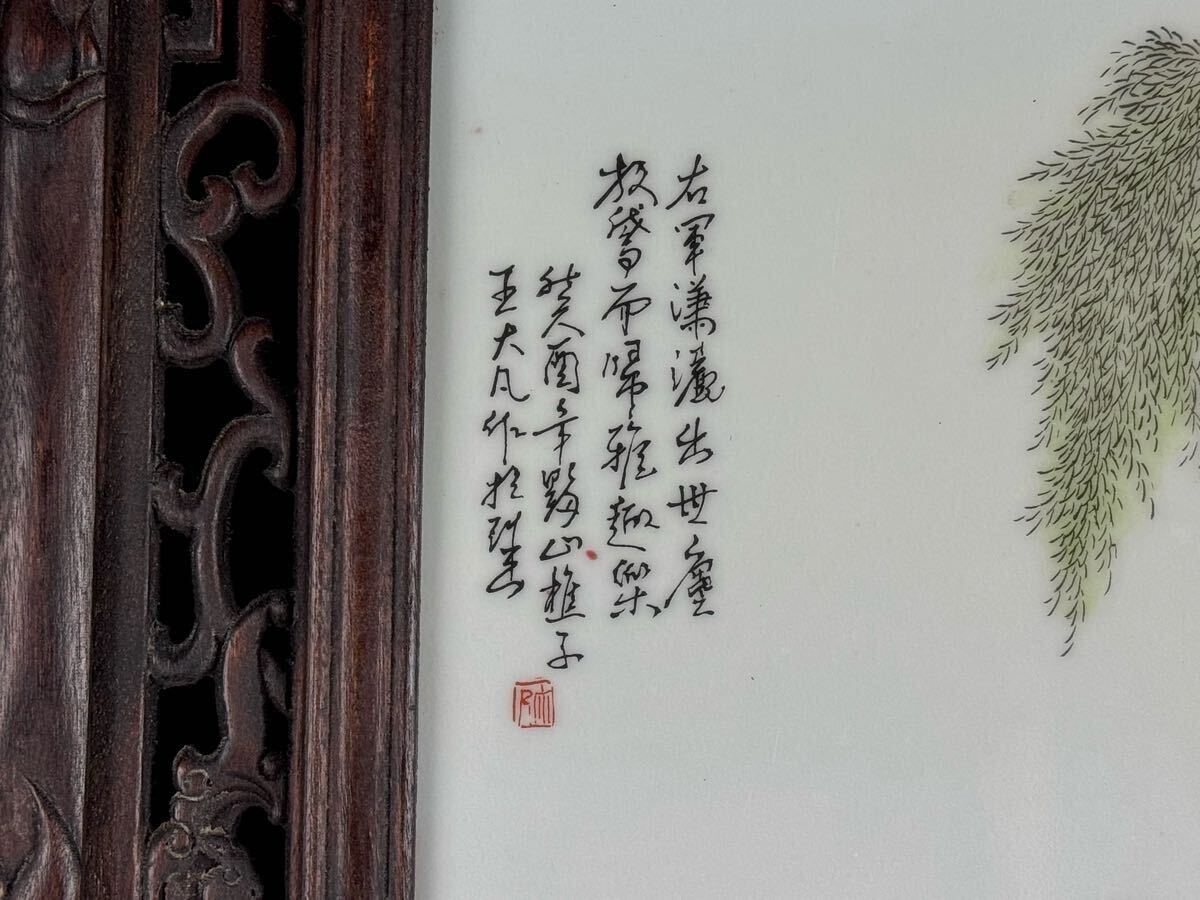 右軍瀟灑出世塵
放鵞而歸雅趣樂
癸酉年黟山樵子
王大凡作於珠山